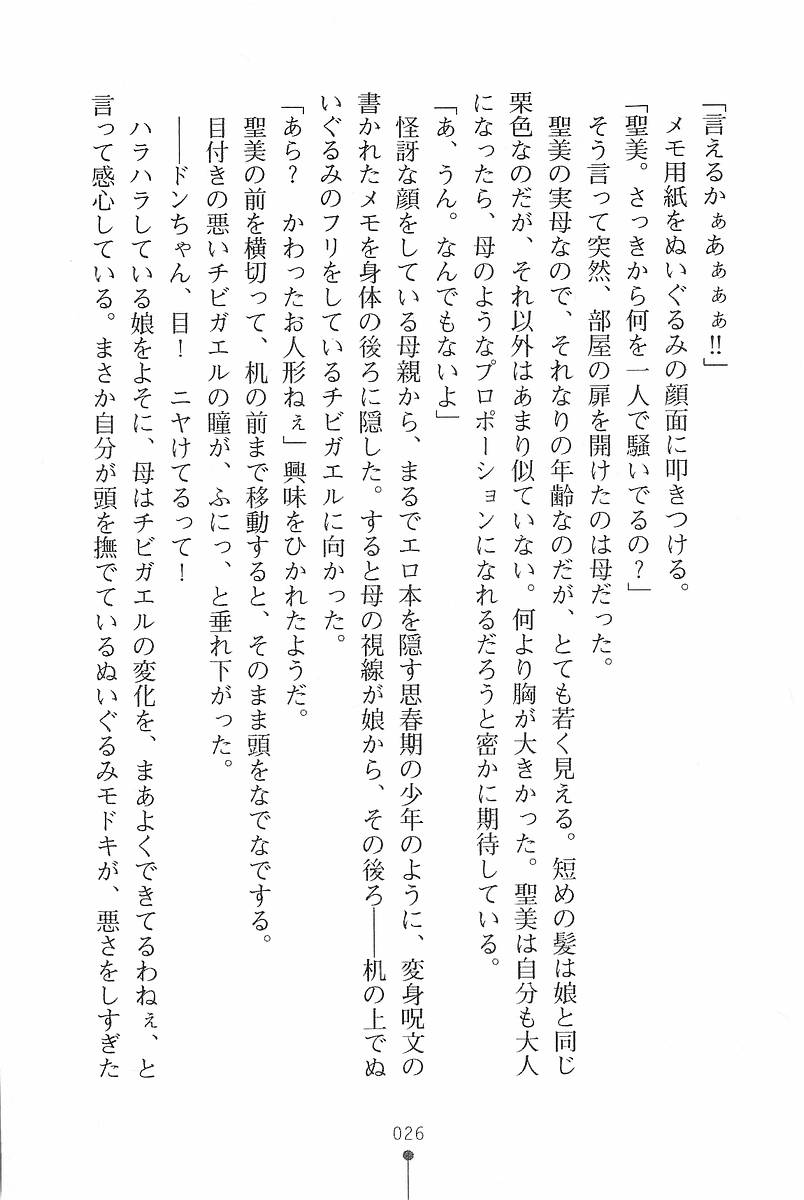 「言えるかぁあぁぁぁ!!」
　メモ用紙をぬいぐるみの顔面に叩きつける。
「聖美。さっきから何を一人で騒いでるの？」
　そう言って突然、部屋の扉を開けたのは母だった。
　聖美の実母なので、それなりの年齢なのだが、とても若く見える。短めの髪は娘と同じ
栗色なのだが、それ以外はあまり似ていない。何より胸が大きかった。聖美は自分も大人
になったら、母のようなプロポーションになれるだろうと密かに期待している。
「あ、うん。なんでもないよ」
　怪訝な顔をしている母親から、まるでエロ本を隠す思春期の少年のように、変身呪文の
書かれたメモを身体の後ろに隠した。すると母の視線が娘から、その後ろ――机の上でぬ
いぐるみのフリをしているチビガエルに向かった。
「あら？　かわったお人形ねぇ」興味をひかれたようだ。
　聖美の前を横切って、机の前まで移動すると、そのまま頭をなでなでする。
　目付きの悪いチビガエルの瞳が、ふにっ、と垂れ下がった。
　――ドンちゃん、目！　ニヤけてるって！
　ハラハラしている娘をよそに、母はチビガエルの変化を、まあよくできてるわねぇ、と
言って感心している。まさか自分が頭を撫でているぬいぐるみモドキが、悪さをしすぎた
026